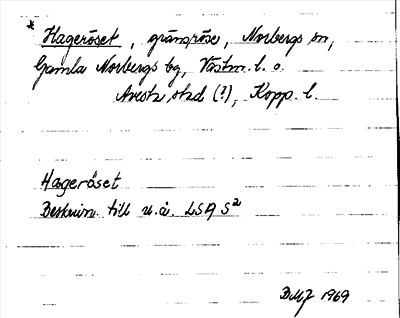 * Hageröset, gränsröse, Norbergs sn,
Gamla Norbergs bg, Västm. l. o.
Avesta stad (?), Kopp. l.
Hageröset
Beskrivn. till u.å. LSA S²
1969